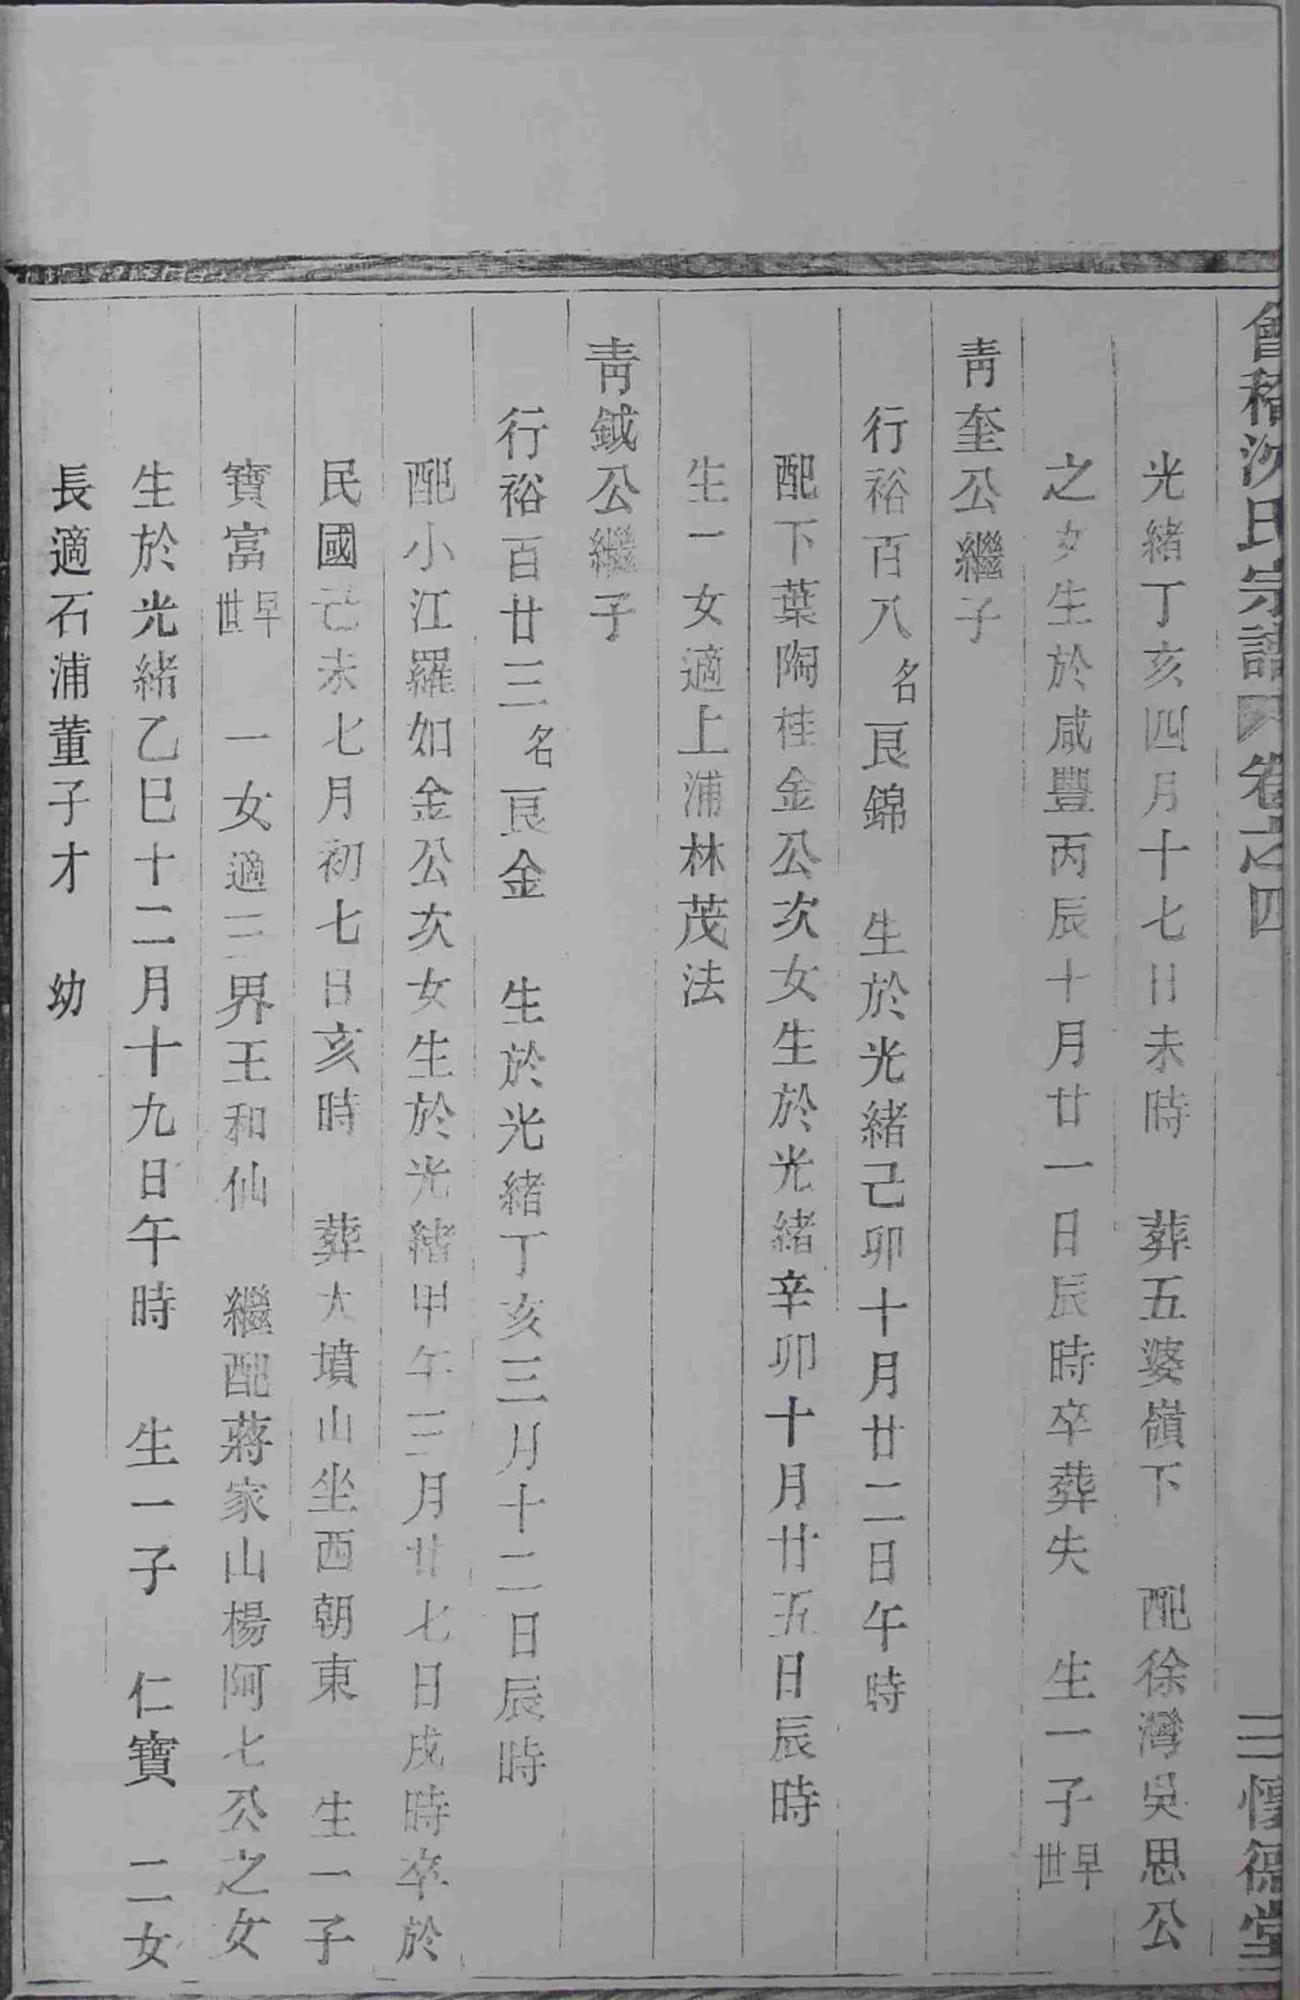 會稽沈氏宗譜 卷之四 三 懷德堂
光緒丁亥四月十七日未時 葬五婆嶺下 配徐灣吳思公
之女生於咸豐丙辰十月廿一日辰時卒葬失 生一子早世
靑奎公繼子
行裕百八名良錦 生於光緒己卯十月廿二日午時
配下葉陶桂金公次女生於光緒辛卯十月廿五日辰時
生一女適上浦林茂法
靑鉞公繼子
行裕百廿三名良金 生於光緒丁亥三月十二日辰時
配小江羅如金公次女生於光緒甲午三月廿七日戌時卒於
民國己未七月初七日亥時 葬大墳山坐西朝東 生一子
寶富早世 一女適三界王和仙 繼配蔣家山楊阿七公之女
生於光緒乙巳十二月十九日午時 生一子 仁寶 二女
長適石浦董子才 幼